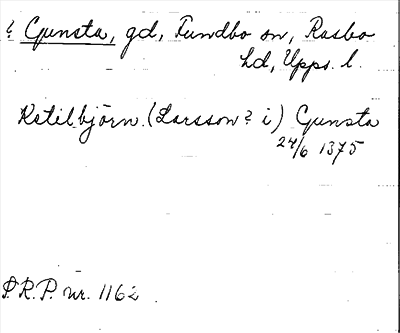 ? Gunsta, gd, Funbo sn, Rasbo
hd, Upps. l.
Ketilbjörn (Larsson? i) Gunsta
24/6 1375
P.R.P. nr. 1162